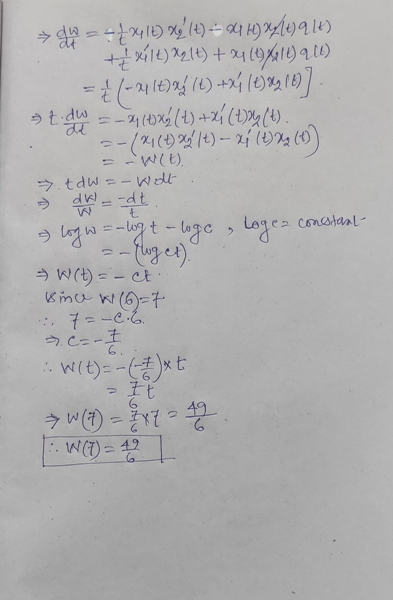 ⇒ dw/dt = -1/t x₁(t) x₂'(t) - x₁(t) x₂(t) q(t)
+ 1/t x₁'(t) x₂(t) + x₁(t) x₂(t) q(t)
= 1/t (-x₁(t) x₂'(t) + x₁'(t) x₂(t)]
⇒ t·dw/dt = -x₁(t) x₂'(t) + x₁'(t) x₂(t).
= -(x₁(t) x₂'(t) - x₁'(t) x₂(t))
= -W(t).
⇒ t dw = -W dt
⇒ dW/W = -dt/t
⇒ log w = -log t - log c, Log c = constant
= -(log ct).
⇒ W(t) = -ct.
Since W(6) = 7
∴ 7 = -c·6.
⇒ c = -7/6.
∴ W(t) = -(-7/6) × t
= 7/6 t
⇒ W(7) = 7/6 × 7 = 49/6
∴ W(7) = 49/6